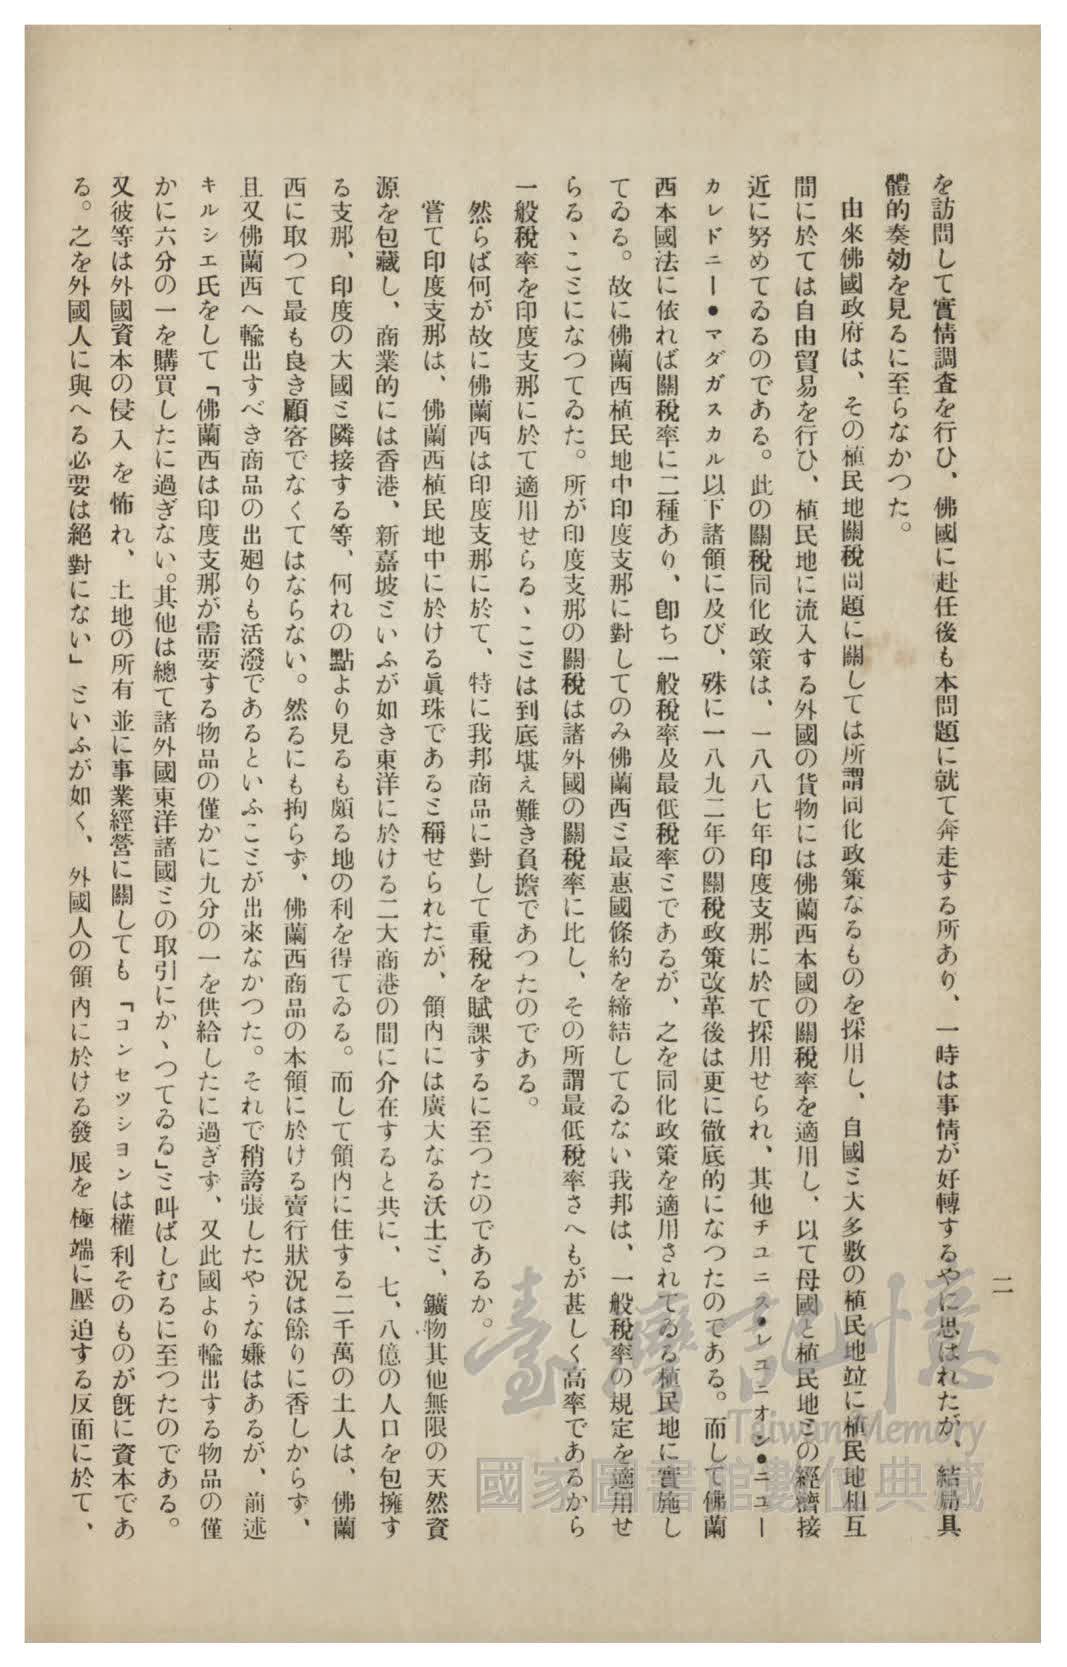 二
を訪問して實情調査を行ひ、佛國に赴任後も本問題に就て奔走する所あり、一時は事情が好轉するやに思はれたが、結局具
體的奏効を見るに至らなかつた。
由來佛國政府は、その植民地關稅問題に關しては所謂同化政策なるものを採用し、自國ミ大多數の植民地竝に植民地相互
間に於ては自由貿易を行ひ、植民地に流入する外國の貨物には佛蘭西本國の關稅率を適用し、以て母國と植民地ミの經濟接
近に努めてゐるのである。此の關稅同化政策は、一八八七年印度支那に於て採用せられ、其他チユニス•レユニオン•ニユー
カレドニー•マダガスカル以下諸領に及び、殊に一八九二年の關稅政策改革後は更に徹底的になつたのである。而して佛蘭
西本國法に依れば關稅率に二種あり、卽ち一般稅率及最低稅率ミであるが、之を同化政策を適用されてゐる植民地に實施し
てゐる。故に佛蘭西植民地中印度支那に對してのみ佛蘭西ミ最惠國條約を締結してゐない我邦は、一般稅率の規定を適用せ
らるヽこミになつてゐた。所が印度支那の關稅は諸外國の關稅率に比し、その所謂最低稅率さへもが甚しく高率であるから
一般稅率を印度支那に於て適用せらるヽこミは到底堪え難き負擔であつたのである。
然らば何が故に佛蘭西は印度支那に於て、特に我邦商品に對して重稅を賦課するに至つたのであるか。
嘗て印度支那は、佛蘭西植民地中に於ける眞珠であるミ稱せられたが、領內には廣大なる沃土ミ、鑛物其他無限の天然資
源を包藏し、商業的には香港、新嘉坡ミいふが如き東洋に於ける二大商港の間に介在すると共に、七、八億の人口を包擁す
る支那、印度の大國ミ隣接する等、何れの點より見るも頗る地の利を得てゐる。而して領內に住する二千萬の土人は、佛蘭
西に取つて最も良き顧客でなくてはならない。然るにも拘らず、佛蘭西商品の本領に於ける賣行狀況は餘りに香しからず、
且又佛蘭西へ輸出すべき商品の出廻りも活潑であるといふこミが出來なかつた。それで稍誇張したやうな嫌はあるが、前述
キルシエ氏をして「佛蘭西は印度支那が需要する物品の僅かに九分の一を供給したに過ぎず、又此國より輸出する物品の僅
かに六分の一を購買したに過ぎない。其他は總て諸外國東洋諸國ミの取引にかヽつてゐる」ミ叫ばしむるに至つたのである。
又彼等は外國資本の侵入を怖れ、土地の所有並に事業經營に關しても「コンセツシヨンは權利そのものが旣に資本であ
る。之を外國人に與へる必要は絕對にない」といふが如く、外國人の領內に於ける發展を極端に壓迫する反面に於て、
臺灣記憶
Taiwan Memory
國家圖書館數位典藏